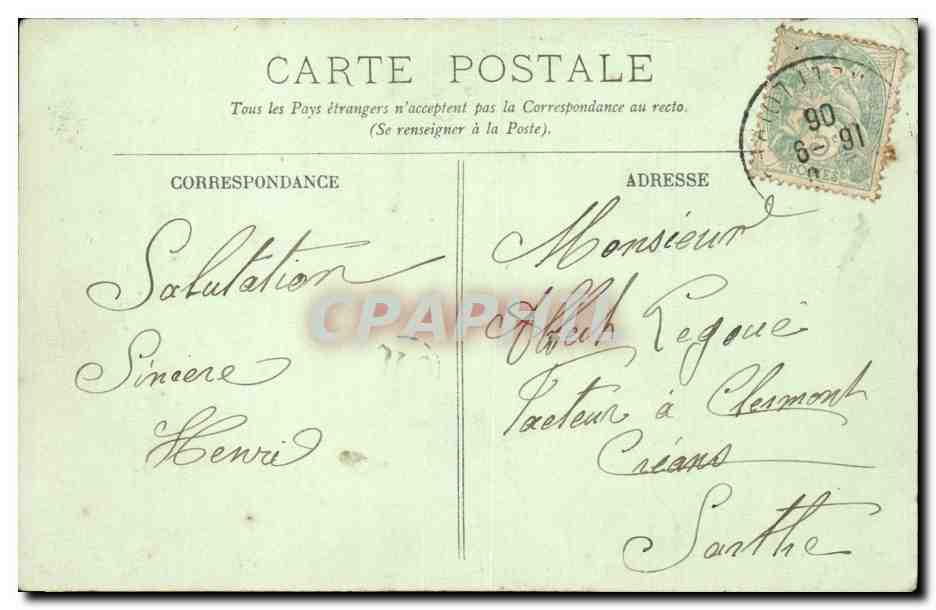 CARTE POSTALE
Tous les Pays étrangers n'acceptent pas la Correspondance au recto.
(Se renseigner à la Poste).
CORRESPONDANCE
ADRESSE
Salutation
Sincere
Henri
Monsieur
Albert Legoué
Facteur à Clermont
Créans
Sarthe
CPAPHIL
16-9
06
POSTES